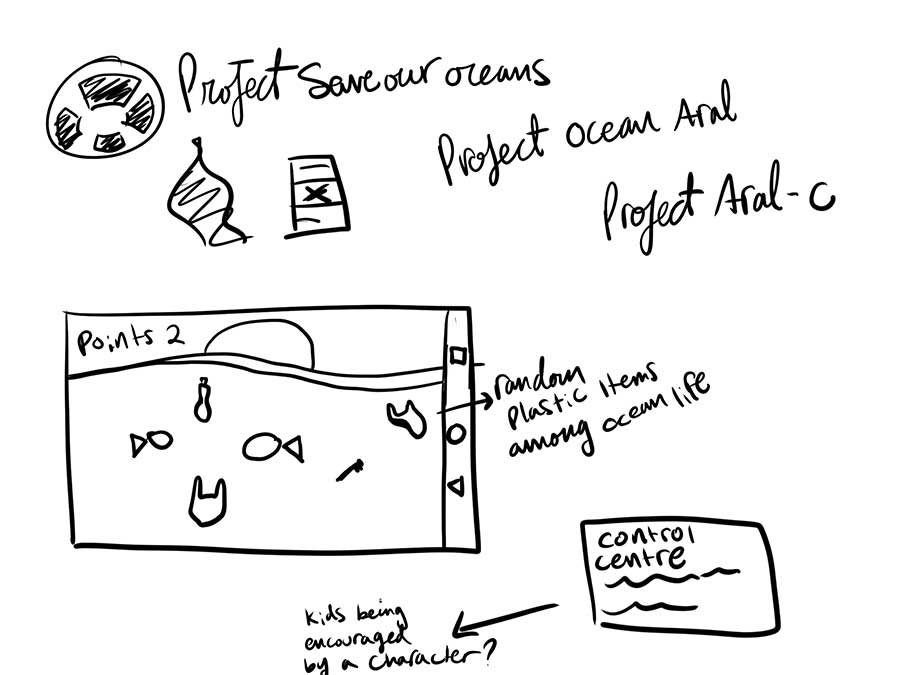 Project Save our oceans
Project Ocean Aral
Project Aral-C
Points 2
random
plastic items
among ocean life
control
centre
kids being
encouraged
by a character?